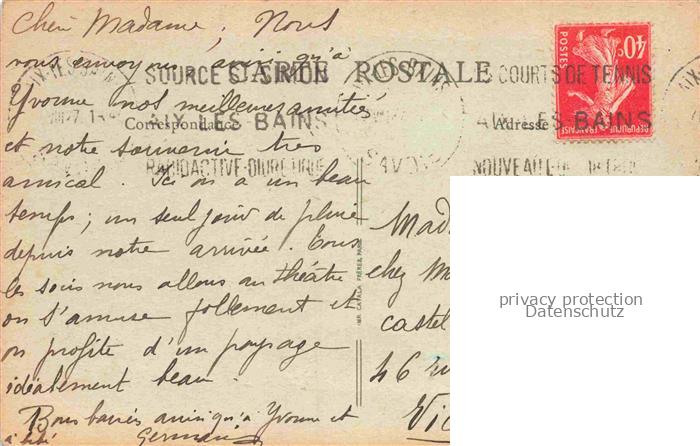 Chère Madame, Nous
vous envoyons, ainsi qu'à
Yvonne nos meilleures amitiés
et notre souvenir très
amical. Ici on a un beau
temps; un seul jour de pluie
depuis notre arrivée. Tous
les soirs nous allons au théâtre
on s'amuse follement et
on profite d'un paysage
idéalement beau.
Bons baisers ainsi qu'à Yvonne et
à bébé Germaine
CARTE POSTALE
Correspondance
Adresse
SOURCE ST SIMON
AIX-LES-BAINS
RADIOACTIVE-DIURETIQUE
COURTS DE TENNIS
AIX-LES-BAINS
NOUVEAUTE
AIX-LES-BAINS
SAVOIE
40c
POSTES
REPUBLIQUE FRANÇAISE
IMP. CAVALA FRÈRES, PARIS
Mad
chez M
castel
46 ru
Vic
privacy protection
Datenschutz